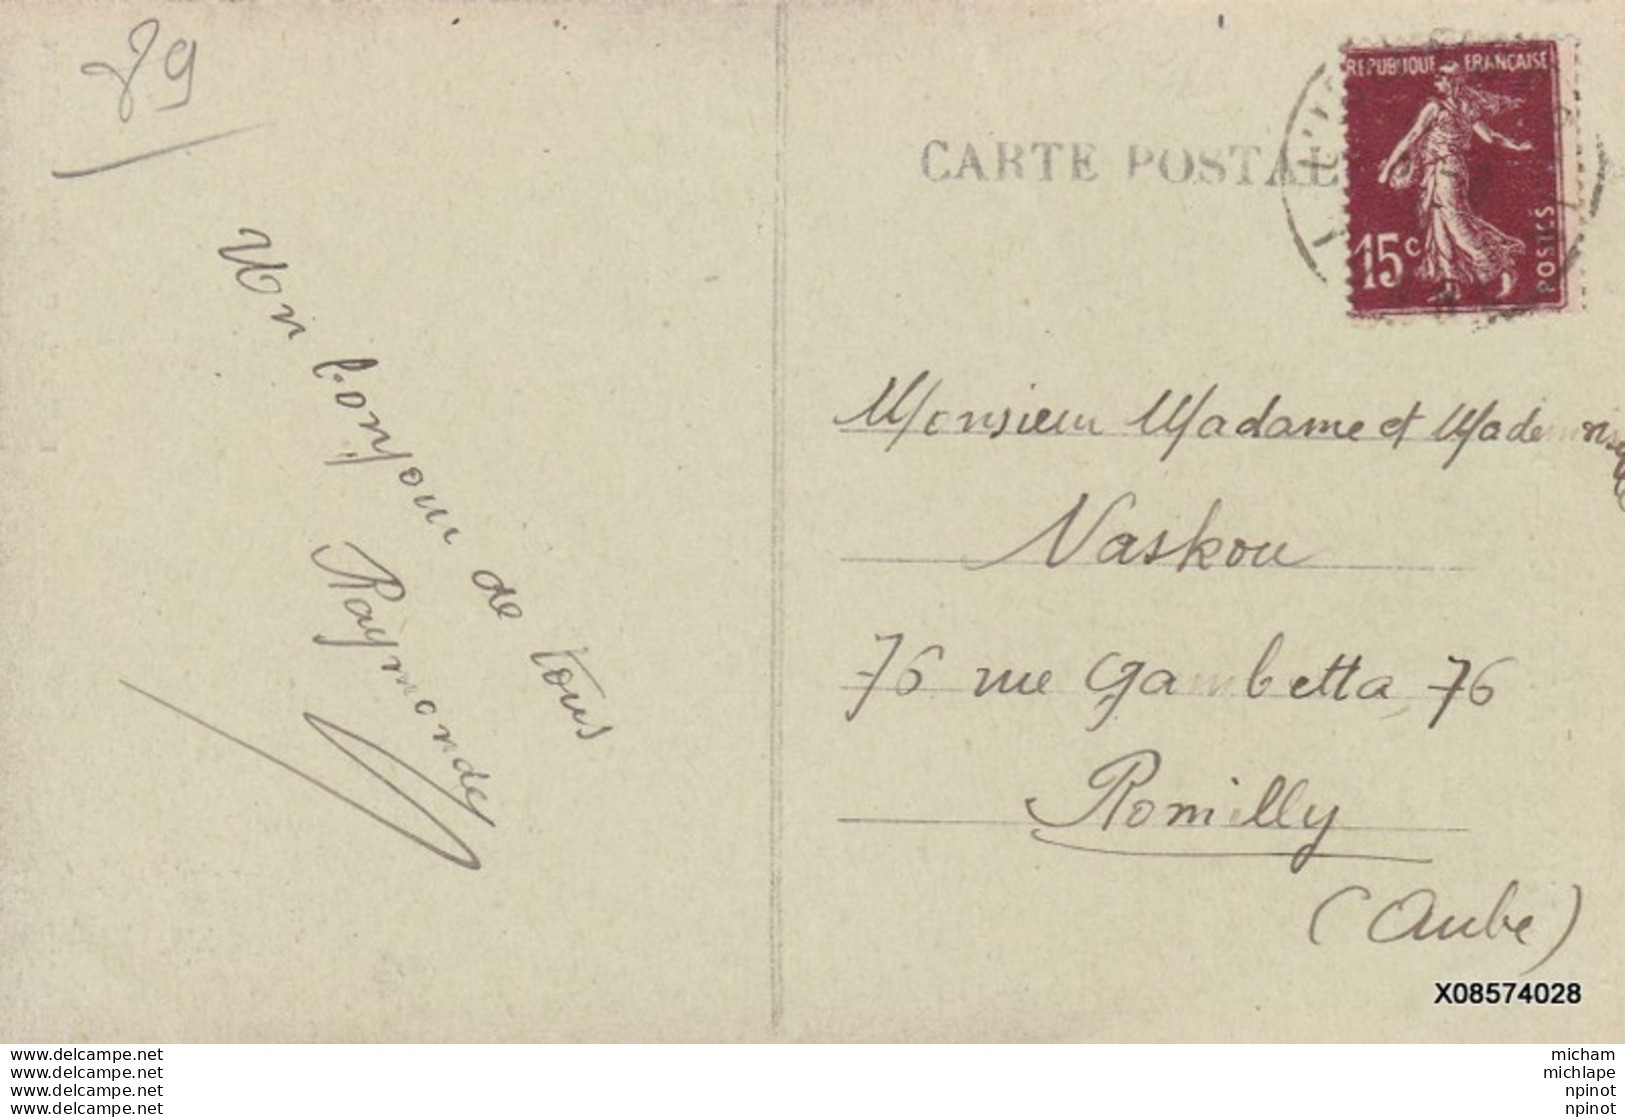 89
Un bonjour de tous
Raymonde
CARTE POSTALE
REPUBLIQUE FRANÇAISE
15c
POSTES
Monsieur Madame et Mademoiselle
Vaskou
76 rue Gambetta 76
Romilly
(Aube)
X08574028
www.delcampe.net
www.delcampe.net
www.delcampe.net
www.delcampe.net
micham
michlape
npinot
npinot